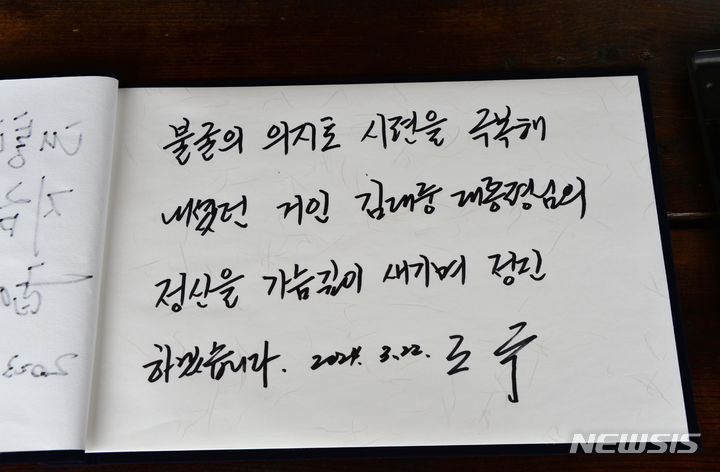 불굴의 의지로 시련을 극복해
내셨던 거인 김대중 대통령님의
정신을 가슴깊이 새기며 정진
하겠습니다. 2024. 3. 22. 조 국
NEWSIS